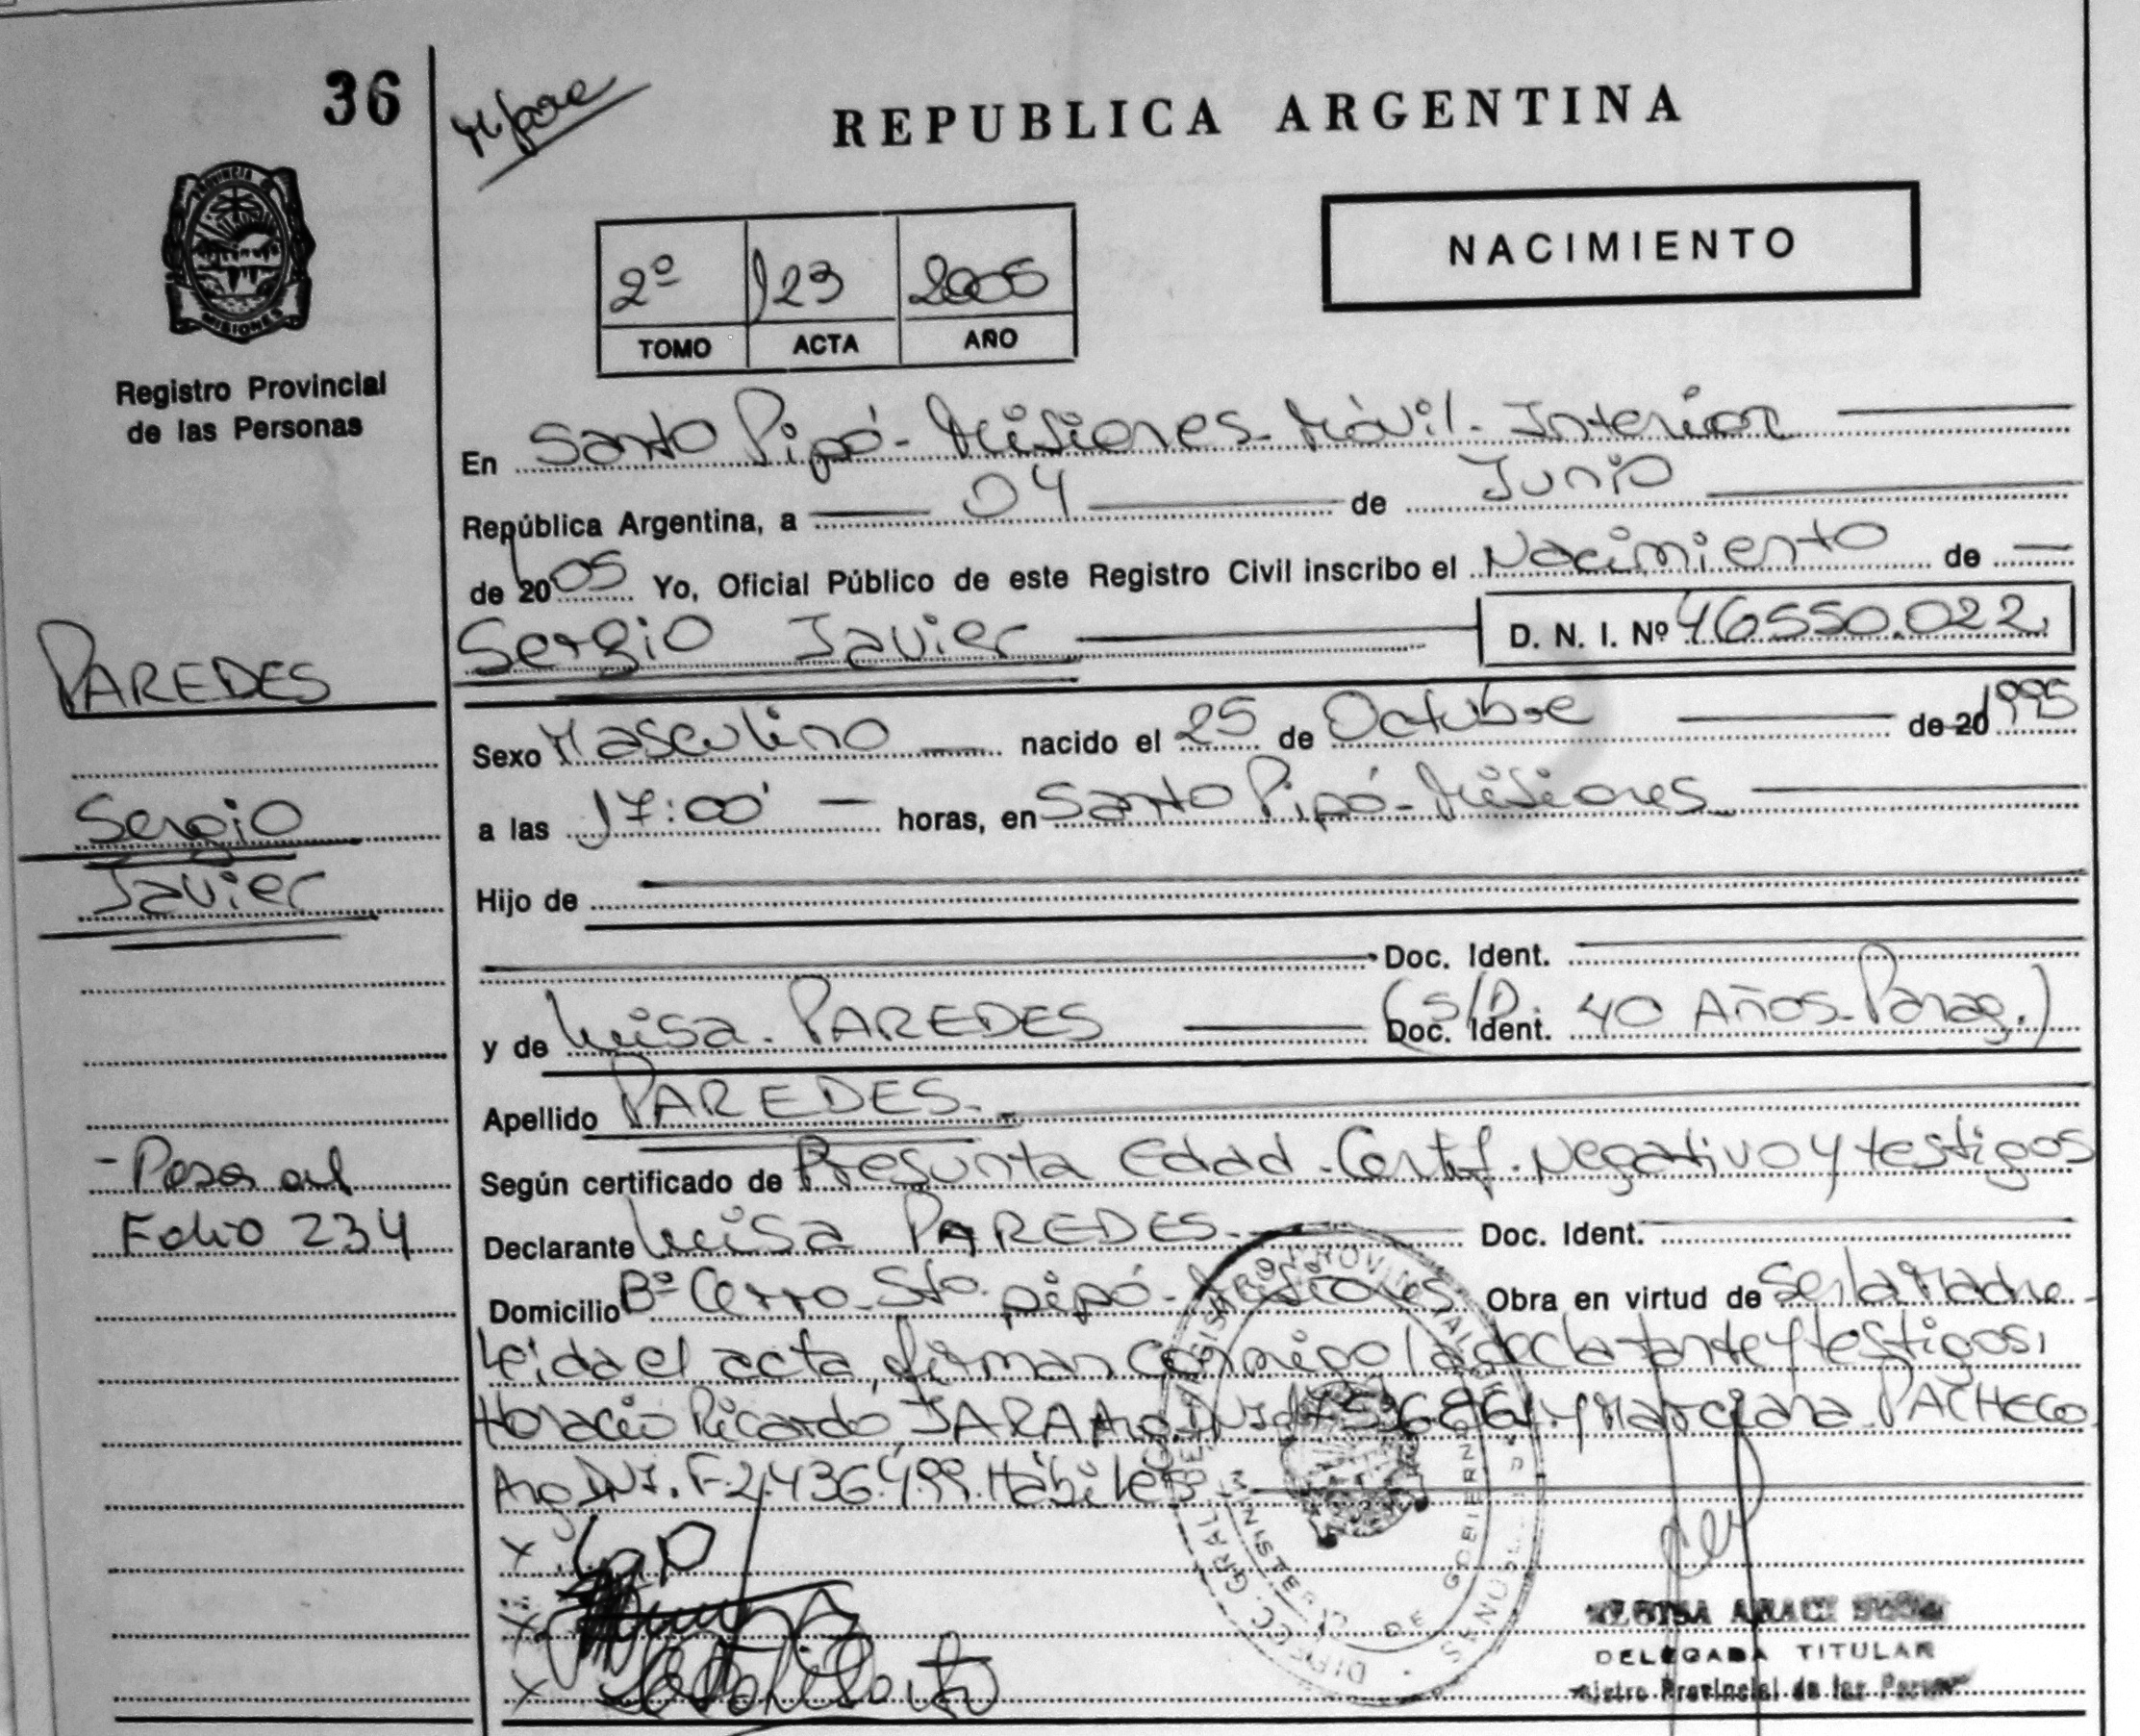 36
REPUBLICA ARGENTINA
NACIMIENTO
2º 123 2005
TOMO ACTA AÑO
PROVINCIA DE
MISIONES
Registro Provincial
de las Personas
En Santo Pipó - Misiones - Móvil - Interior
República Argentina, a 04 de Junio
de 2005 Yo, Oficial Público de este Registro Civil inscribo el Nacimiento de
Sergio Javier D. N. I. Nº 46550.022
PAREDES
Sexo Masculino nacido el 25 de Octubre de 20 1995
Sergio
a las 17:00' horas, en Santo Pipó - Misiones
Javier
Hijo de
Doc. Ident.
y de Luisa - PAREDES Doc. Ident. (S/D. 40 Años - Parag.)
Apellido PAREDES -
- Pasa al
Según certificado de Presunta Edad - Certif. Negativo y testigos
Folio 234
Declarante Luisa PAREDES - Doc. Ident.
Domicilio Bº Cerro - Sto. pipó - Misiones Obra en virtud de Ser la Madre -
Leida el acta, firman conmigo la declarante y testigos,
Horacio Ricardo JARA Arg. DNI y Marciana PACHECO
Arg DNI. F 2.436.499. Hábiles
DELEGADA TITULAR
Provincial de las